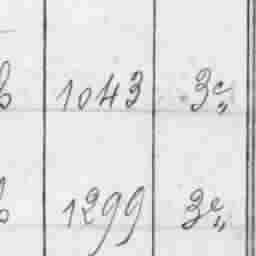 1043 3c„
1299 3c„